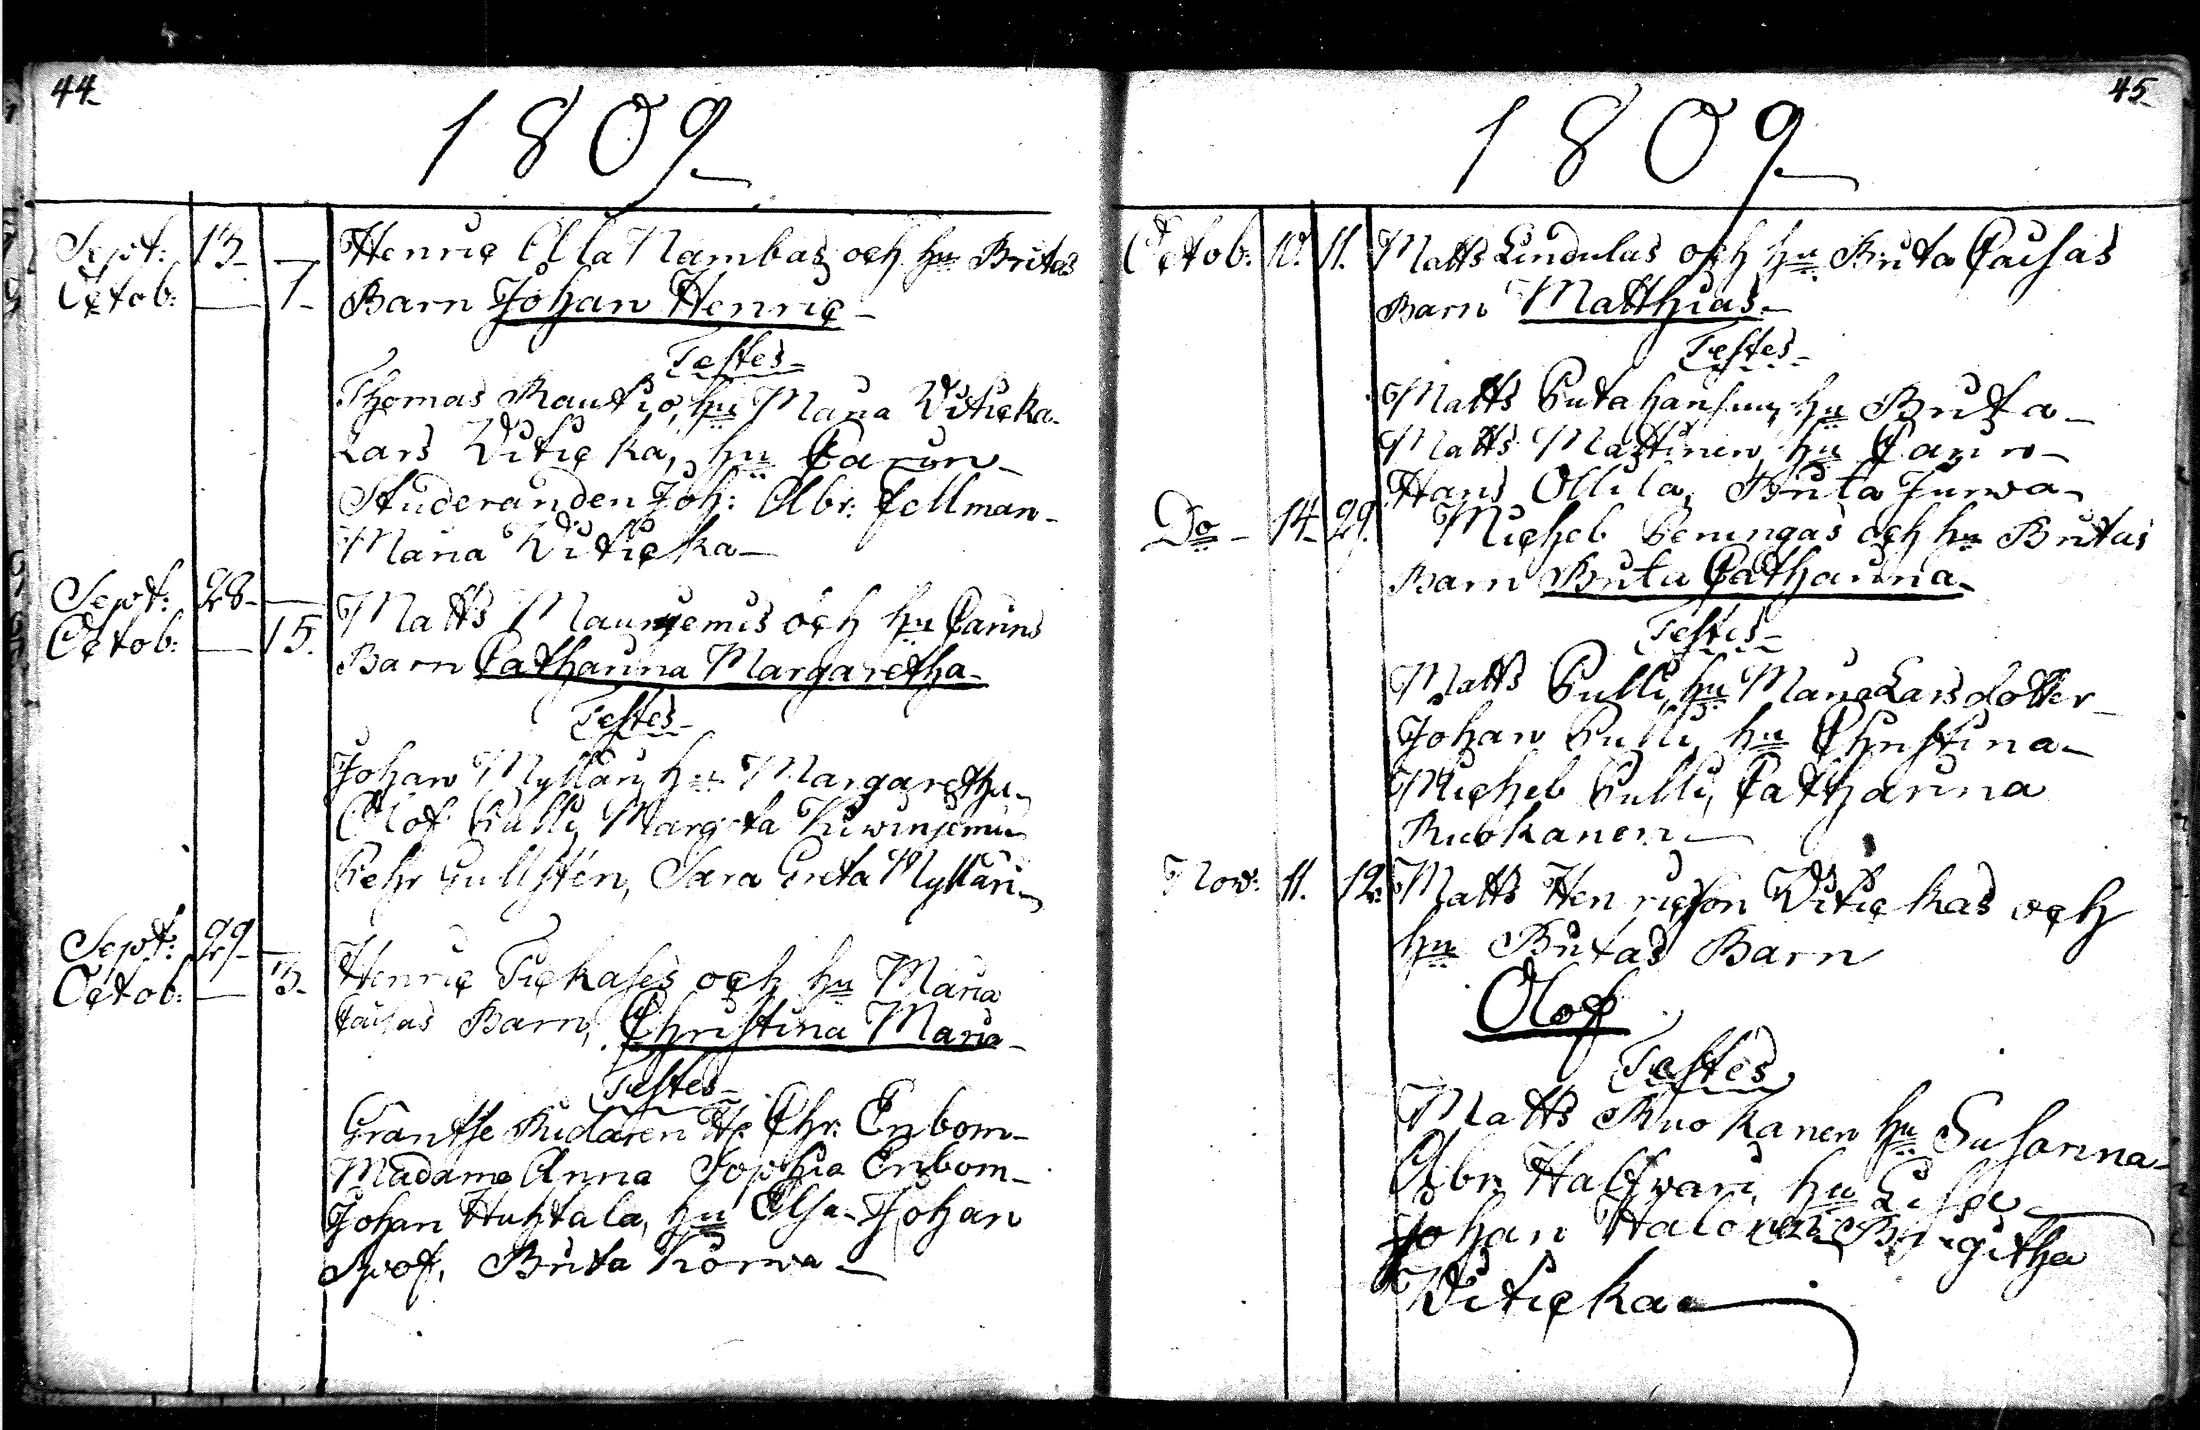 44
1809
Sept: 13 — Henric AlaNambas och hu Britas
Octob: — 1 Barn Johan Henric
Testes
Thomas Rautio, hu Maria Witicka
Lars Witicka, hu Carin
Studeranden Joh: Abr: Fellman
Maria Witicka
Sept: 28 — Matts Maunjemis och hu Carins
Octob: — 15. Barn Catharina Margaretha
Testes
Johan Myllari, hu Margaretha
Olof Pulli, Margeta
Pehr Gullstén, Sara Greta Myllari
Sept: 29 —
Octob: — 3. Henric Tickases och hu Maria
Caisas Barn, Christina Maria
Testes
Grantse Ridaren H: Chr: Enbom
Madame Anna Sophia Enbom
Johan Huhtala, hu Elsa Johan
Brita Korwa
45
1809
Octob: 10. 11. Matts Lindulas och hu Brita Caisas
Barn Matthias
Testes
Matts hu Brita
Matts Marttinen, hu Carin
Hans Ollila, Brita Jurwa
Do 14 29. Michel Peningas och hu Britas
Barn Brita Catharina
Testes
Matts Pulli, hu Maria Larsdotter
Johan Pulli, hu Christina
Michel Pulli, Catharina
Ruokanen
Nov: 11. 12. Matts Henricson Witickas och
hu Britas Barn
Olof
Testes
Matts Ruokanen hu Susanna
Abr: Halfvari, hu Lisa
Johan Halonen Birgitha
Witicka